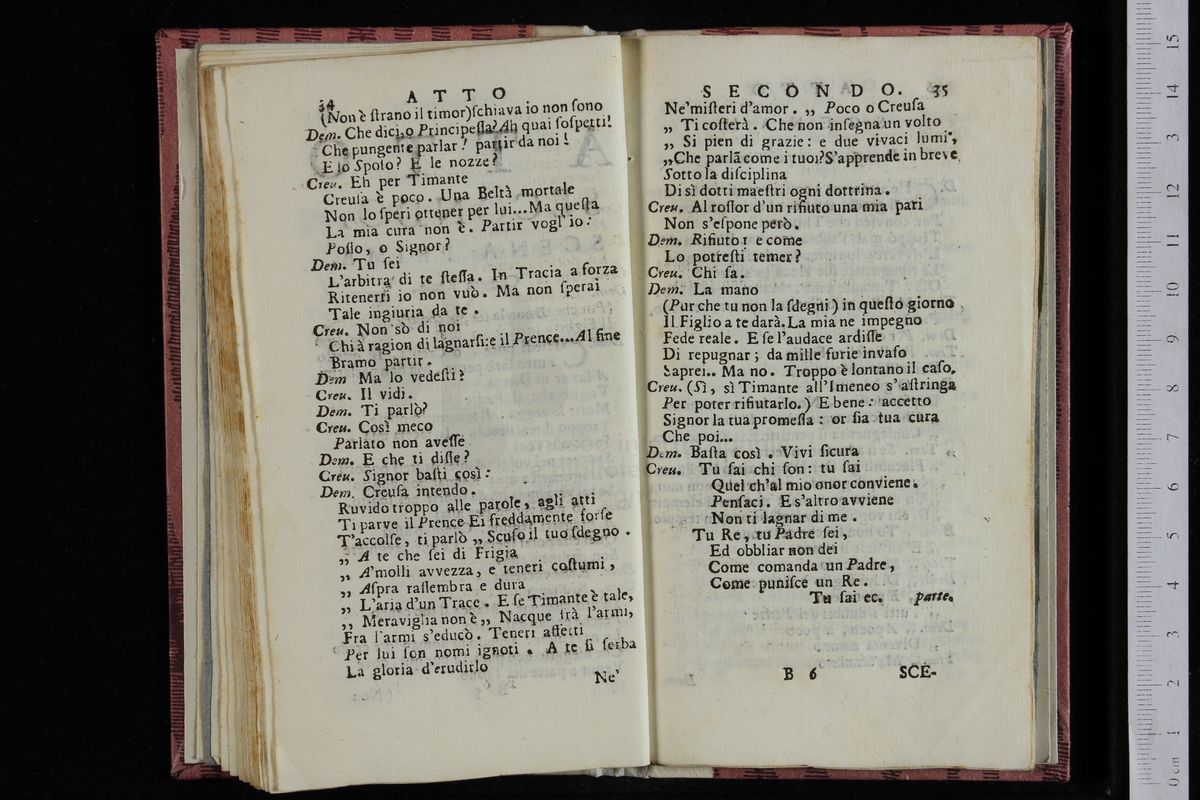 34 ATTO
(Non è ſtrano il timor)ſchiava io non ſono
Dem. Che dici,o Principeſſa?Ah quai ſoſpetti!
Che pungente parlar! partir da noi!
E lo Spoſo? E le nozze?
Creu. Eh per Timante
Creuſa è poco. Una Beltà mortale
Non lo ſperi ottener per lui...Ma queſta
La mia cura non è. Partir vogl'io:
Poſſo, o Signor?
Dem. Tu ſei
L'arbitra di te ſteſſa. In Tracia a forza
Ritenerti io non vuò. Ma non ſperai
Tale ingiuria da te.
Creu. Non sò di noi
Chi à ragion di lagnarſi:e il Prence...Al fine
Bramo partir.
Dem Ma lo vedeſti?
Creu. Il vidi.
Dem. Ti parlò?
Creu. Così meco
Parlato non aveſſe
Dem. E che ti diſſe?
Creu. Signor baſti così:
Dem. Creuſa intendo.
Ruvido troppo alle parole, agli atti
Ti parve il Prence Ei freddamente forſe
T'accolſe, ti parlò „ Scuſo il tuo ſdegno.
„ A te che ſei di Frigia
„ A'molli avvezza, e teneri coſtumi,
„ Aſpra raſſembra e dura
„ L'aria d'un Trace. E ſe Timante è tale,
„ Meraviglia non è „ Nacque frà l'armi,
Fra l'armi s'educò. Teneri affetti
Per lui ſon nomi ignoti. A te ſi ſerba
La gloria d'erudirlo
Ne'
SECONDO. 35
Ne'miſteri d'amor. „ Poco o Creuſa
„ Ti coſterà. Che non inſegna un volto
„ Si pien di grazie: e due vivaci lumi,
„Che parlã come i tuoi?S'apprende in breve
Sotto la diſciplina
Di sì dotti maeſtri ogni dottrina.
Creu. Al roſſor d'un rifiuto una mia pari
Non s'eſpone però.
Dem. Rifiuto! e come
Lo potreſti temer?
Creu. Chi ſa.
Dem. La mano
(Pur che tu non la ſdegni) in queſto giorno
Il Figlio a te darà.La mia ne impegno
Fede reale. E ſe l'audace ardiſſe
Di repugnar; da mille furie invaſo
Saprei.. Ma no. Troppo è lontano il caſo.
Creu. (Sì, sì Timante all'Imeneo s'aſtringa
Per poter rifiutarlo.) E bene: accetto
Signor la tua promeſſa: or ſia tua cura
Che poi...
Dem. Baſta così. Vivi ſicura
Creu. Tu ſai chi ſon: tu ſai
Quel ch'al mio onor conviene.
Penſaci. E s'altro avviene
Non ti lagnar di me.
Tu Re, tu Padre ſei,
Ed obbliar non dei
Come comanda un Padre,
Come puniſce un Re.
Tu ſai ec. parte.
B 6 SCE-
15
14
13
12
11
10
9
8
7
6
5
4
3
2
1
0 cm